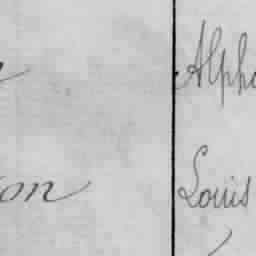 Alpho
on Louis